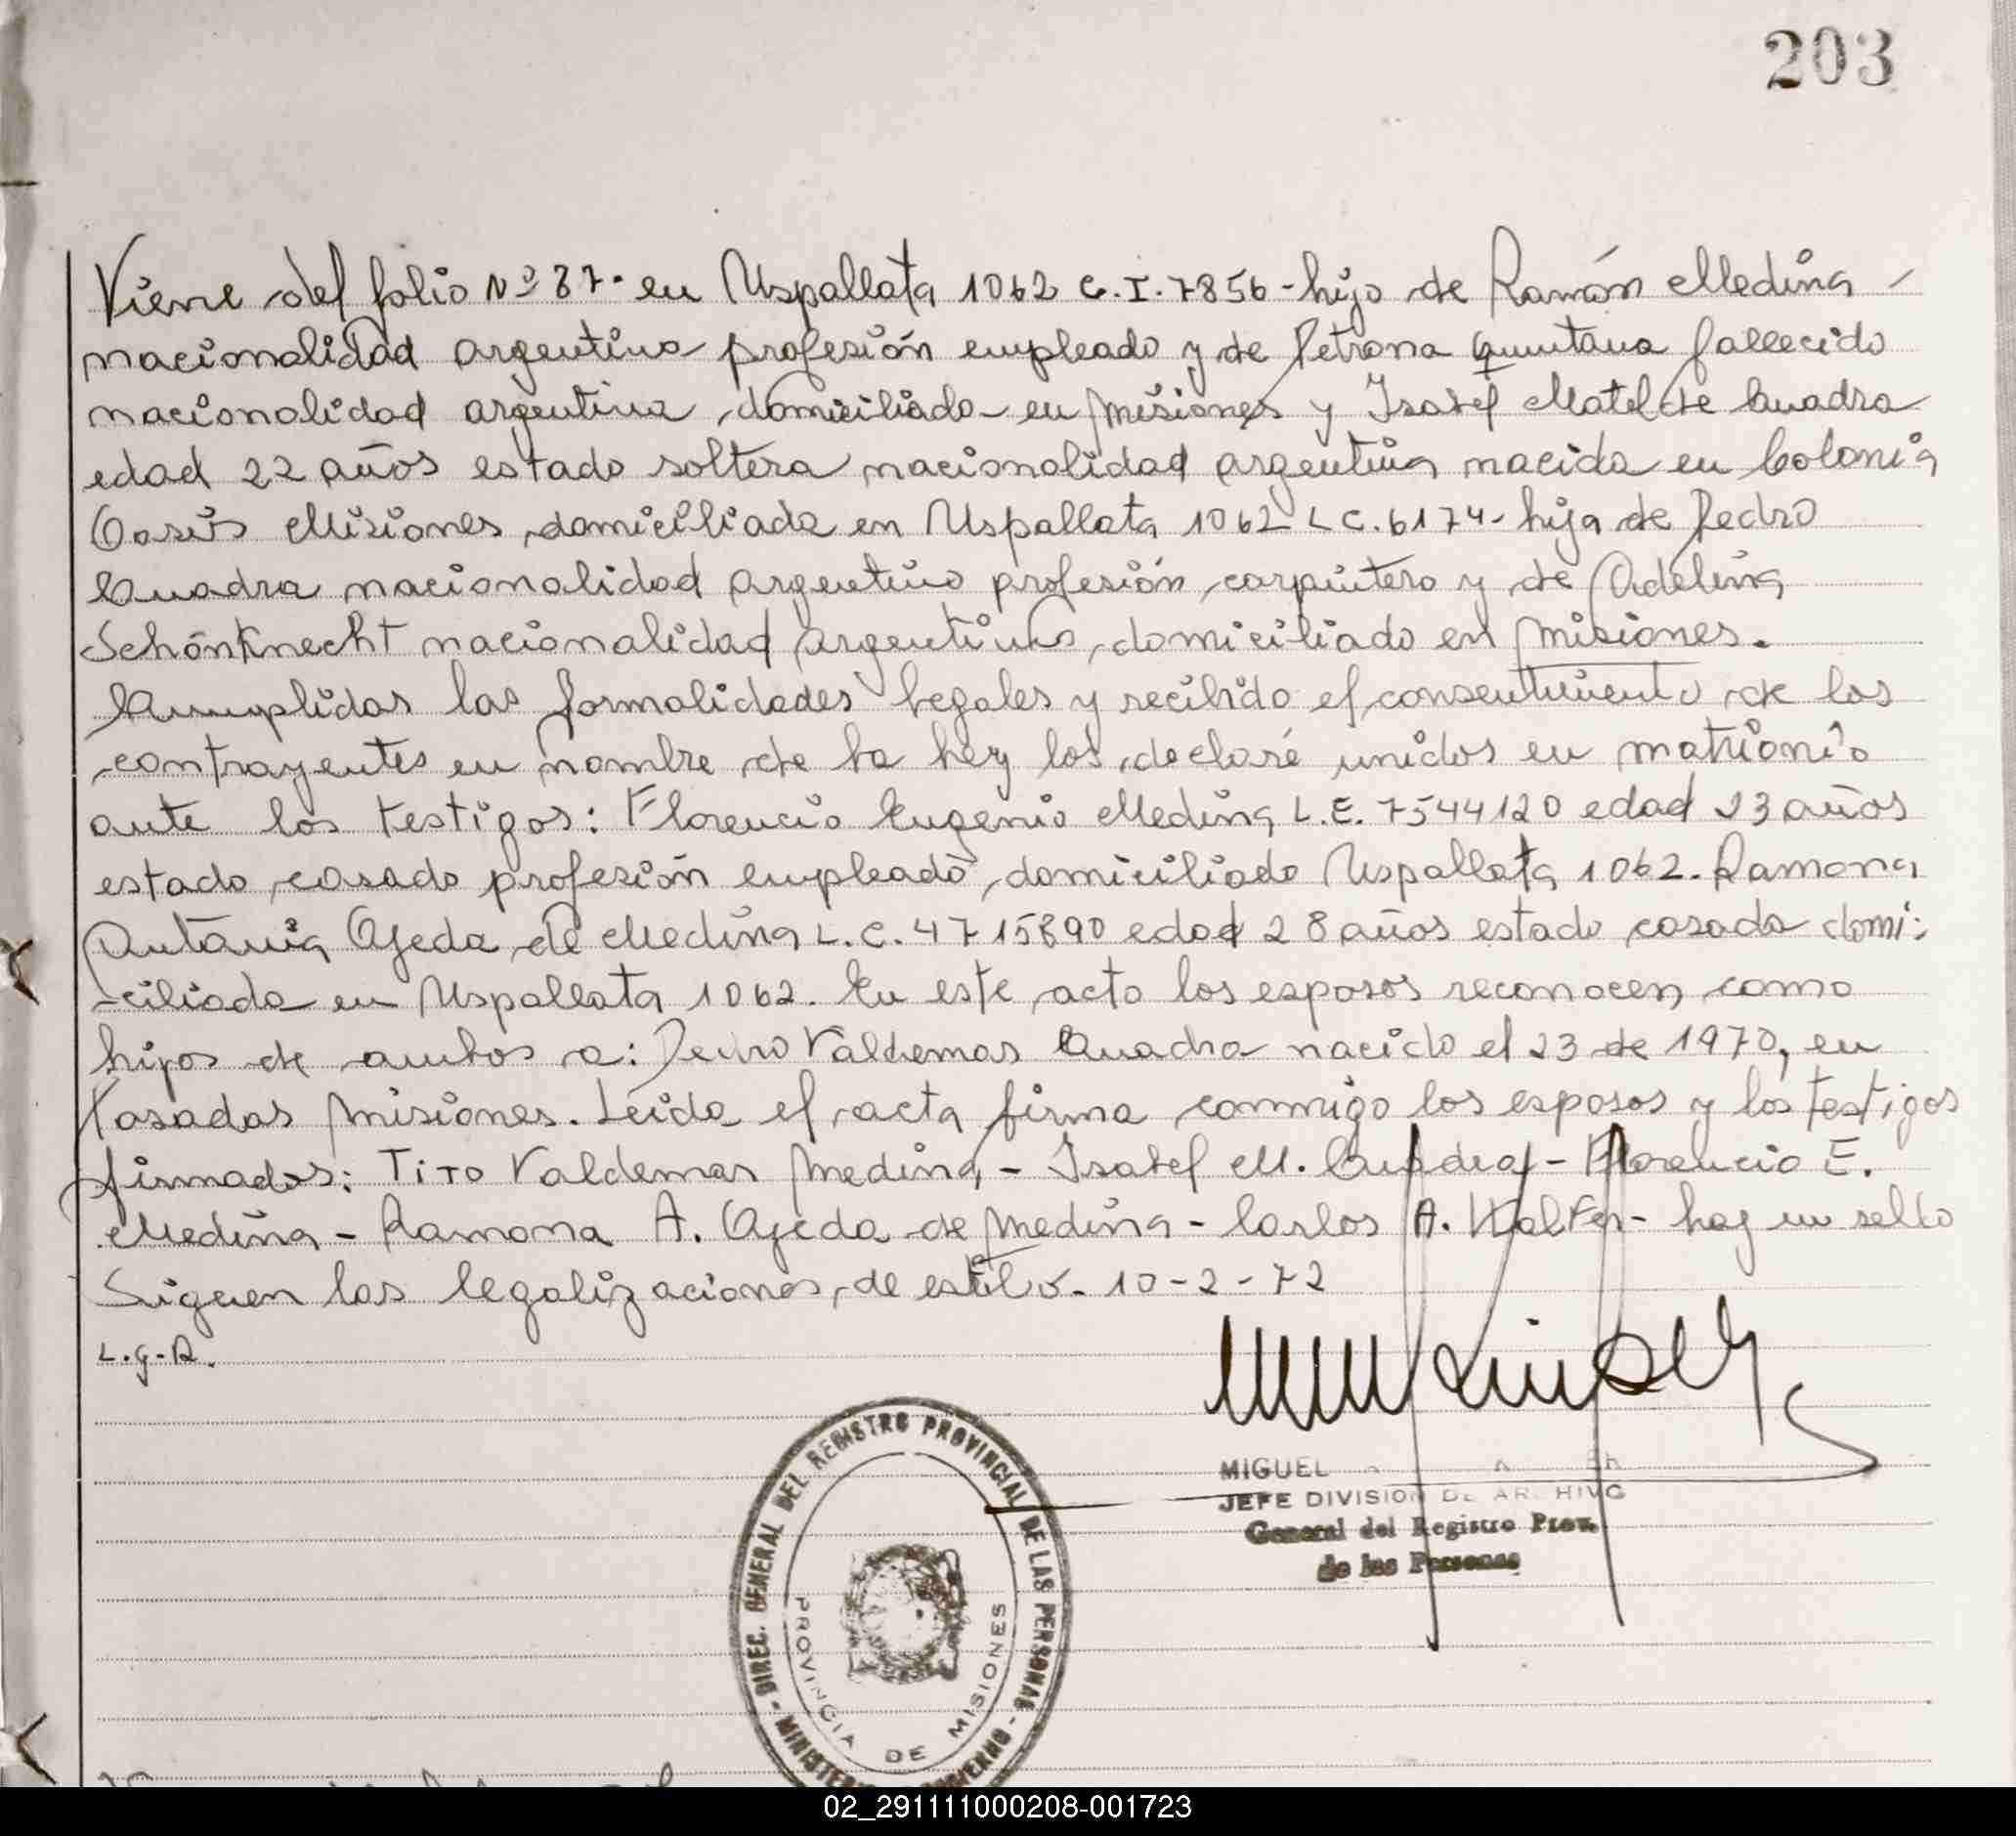 203
Viene del folio Nº 87. en Uspallata 1062 C.I. 7856 - hijo de Ramón Medina -
nacionalidad argentino profesión empleado y de Petrona Quintana fallecido
nacionalidad argentina domiciliado en Misiones y Isabel Matilde Cuadra
edad 22 años estado soltera nacionalidad argentina nacida en Colonia
Oasis Misiones domiciliada en Uspallata 1062 L C. 6174 - hija de Pedro
Cuadra nacionalidad argentino profesión carpintero y de Adelina
Schönknecht nacionalidad argentina domiciliado en Misiones.
Cumplidas las formalidades legales y recibido el consentimiento de los
contrayentes en nombre de la ley los declaré unidos en matrionio
ante los testigos: Florencio Eugenio Medina L.E. 7544120 edad 23 años
estado casado profesión empleado domiciliado Uspallata 1062. Ramona
Antonia Ojeda de Medina L.C. 4715890 edad 28 años estado casada domi-
-ciliada en Uspallata 1062. En este acto los esposos reconocen como
hijos de ambos a: Pedro Valdemar Cuadra nacido el 23 de 1970, en
Posadas Misiones. Leída el acta firma conmigo los esposos y los testigos
firmados: Tito Valdemar Medina - Isabel M. Cuadra - Florencio E.
Medina - Ramona A. Ojeda de Medina - Carlos A. Walter - hay un sello
Siguen las legalizaciones de estilo. 10-2-72
L.G.R.
MIGUEL
JEFE DIVISION DE ARCHIVO
General del Registro Prov.
de las Personas
DIREC. GENERAL DEL REGISTRO PROVINCIAL DE LAS PERSONAS - MINISTERIO GOBIERNO -
PROVINCIA DE MISIONES
02_291111000208-001723